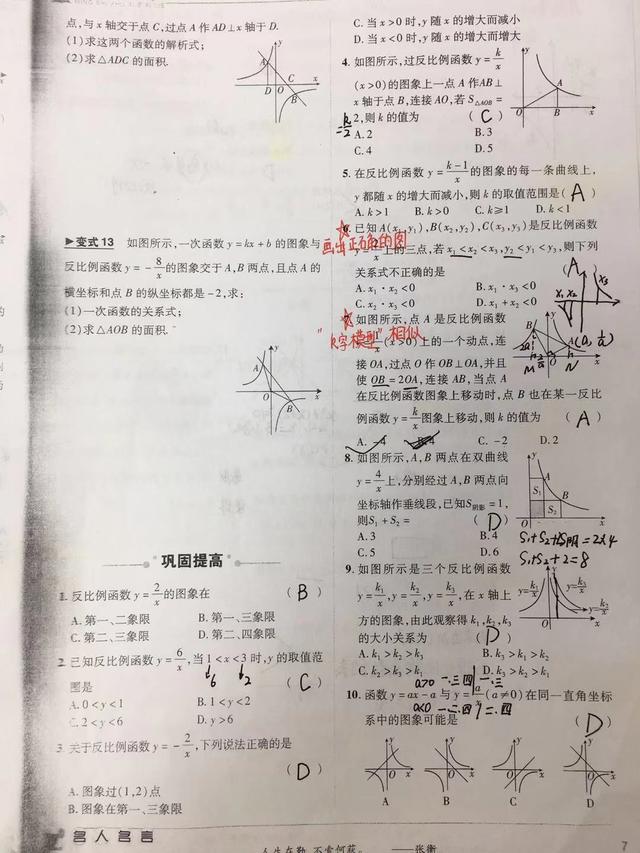 点,与 x 轴交于点 C,过点 A 作 AD⊥x 轴于 D.
(1)求这两个函数的解析式;
(2)求△ADC 的面积.
y
A
C
D
O
B
x
▶变式 13 如图所示,一次函数 y=kx+b 的图象与
反比例函数 y=-8/x 的图象交于 A,B 两点,且点 A 的
横坐标和点 B 的纵坐标都是-2,求:
(1)一次函数的关系式;
(2)求△AOB 的面积.
y
A
O
x
B
巩固提高
1. 反比例函数 y=2/x 的图象在 (B)
A. 第一、二象限 B. 第一、三象限
C. 第二、三象限 D. 第二、四象限
2. 已知反比例函数 y=6/x,当 1<x<3 时,y 的取值范
围是 6 2 (C)
A. 0<y<1 B. 1<y<2
C. 2<y<6 D. y>6
3. 关于反比例函数 y=-2/x,下列说法正确的是
(D)
A. 图象过(1,2)点
B. 图象在第一、三象限
名人名言
C. 当 x>0 时,y 随 x 的增大而减小
D. 当 x<0 时,y 随 x 的增大而增大
4. 如图所示,过反比例函数 y=k/x
(x>0)的图象上一点 A 作 AB⊥
x 轴于点 B,连接 AO,若 S△AOB=
2,则 k 的值为 (C)
k/2=
A. 2 B. 3
C. 4 D. 5
y
A
O
B
x
5. 在反比例函数 y=k-1/x 的图象的每一条曲线上,
y 都随 x 的增大而减小,则 k 的取值范围是(A)
A. k>1 B. k>0 C. k≥1 D. k<1
6. 已知 A(x₁,y₁),B(x₂,y₂),C(x₃,y₃)是反比例函数
画出正确的图
上的三点,若 x₁<x₂<x₃,y₂<y₁<y₃,则下列
关系式不正确的是 (A)
A. x₁·x₂<0 B. x₁·x₃<0
C. x₂·x₃<0 D. x₁+x₂<0
x₁ x₂
x₃
7. 如图所示,点 A 是反比例函数
"k字模型"相似
(x>0)上的一个动点,连
接 OA,过点 O 作 OB⊥OA,并且
使 OB=2OA,连接 AB,当点 A
在反比例函数图象上移动时,点 B 也在某一反比
例函数 y=k/x 图象上移动,则 k 的值为 (A)
A. -4 B. 4 C. -2 D. 2
B
A(a,1/a)
M
N
8. 如图所示,A,B 两点在双曲线
y=4/x 上,分别经过 A,B 两点向
坐标轴作垂线段,已知S阴影=1,
则S₁+S₂= (D)
A. 3 B. 4
C. 5 D. 6
y
A
S₁
B
S₂
O
x
S₁+S₂+2S阴=2×4
S₁+S₂+2=8
9. 如图所示是三个反比例函数
y=k₁/x,y=k₂/x,y=k₃/x,在 x 轴上
方的图象,由此观察得 k₁,k₂,k₃
的大小关系为 (D)
A. k₁>k₂>k₃ B. k₂>k₃>k₁
C. k₂>k₃>k₁ D. k₃>k₂>k₁
y=k₁/x
y=k₃/x
y=k₂/x
a>0 一.三.四 一.三
10. 函数 y=ax-a 与 y=a/x(a≠0)在同一直角坐标
a<0 一.二.四 二.四
系中的图象可能是 (D)
A
B
C
D
人生在勤,不索何获。 ——张衡
7